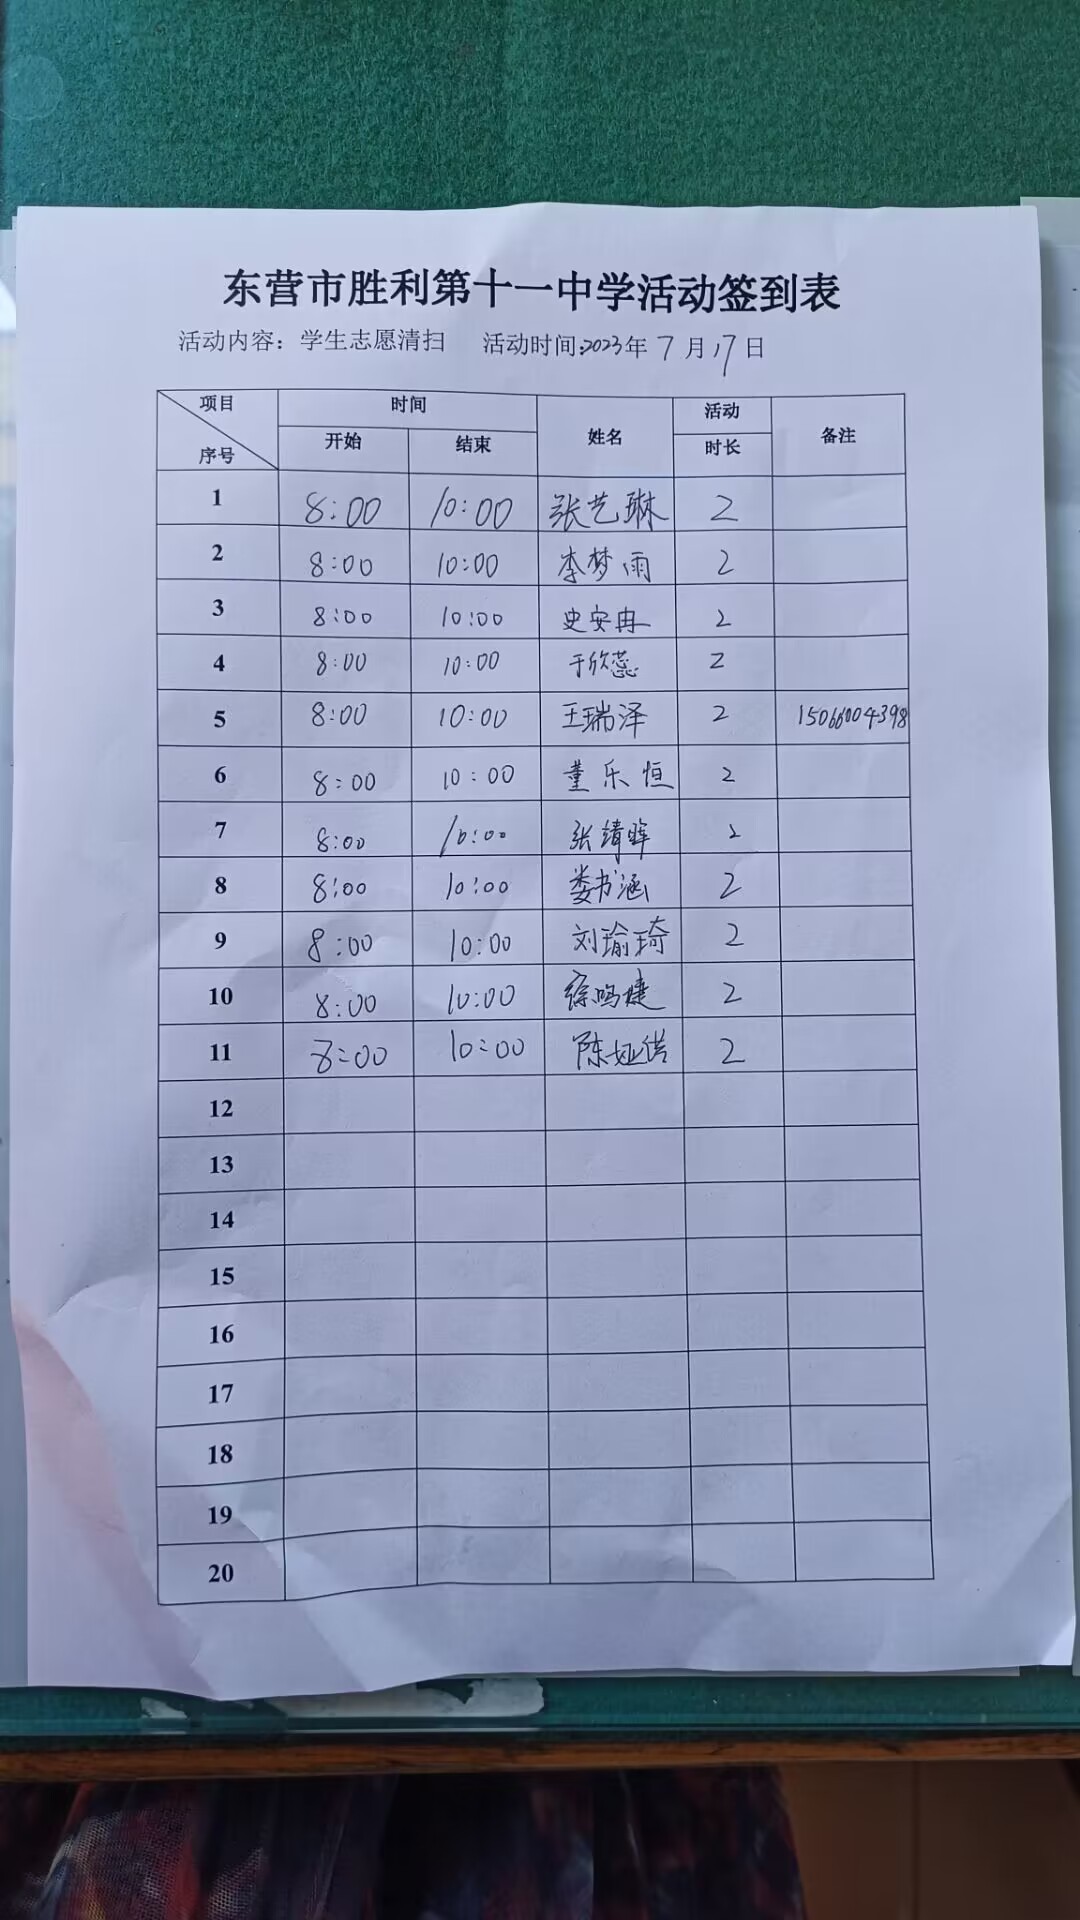 东营市胜利第十一中学活动签到表
活动内容：学生志愿清扫 活动时间:2023年7月17日
项目 时间 姓名 活动 备注
序号 开始 结束 时长
1 8:00 10:00 张艺琳 2
2 8:00 10:00 李梦雨 2
3 8:00 10:00 史安冉 2
4 8:00 10:00 于欣蕊 2
5 8:00 10:00 王瑞泽 2 15066004398
6 8:00 10:00 董乐恒 2
7 8:00 10:00 张靖晖 2
8 8:00 10:00 娄书涵 2
9 8:00 10:00 刘瑜琦 2
10 8:00 10:00 徐鸣婕 2
11 8:00 10:00 陈 2
12
13
14
15
16
17
18
19
20